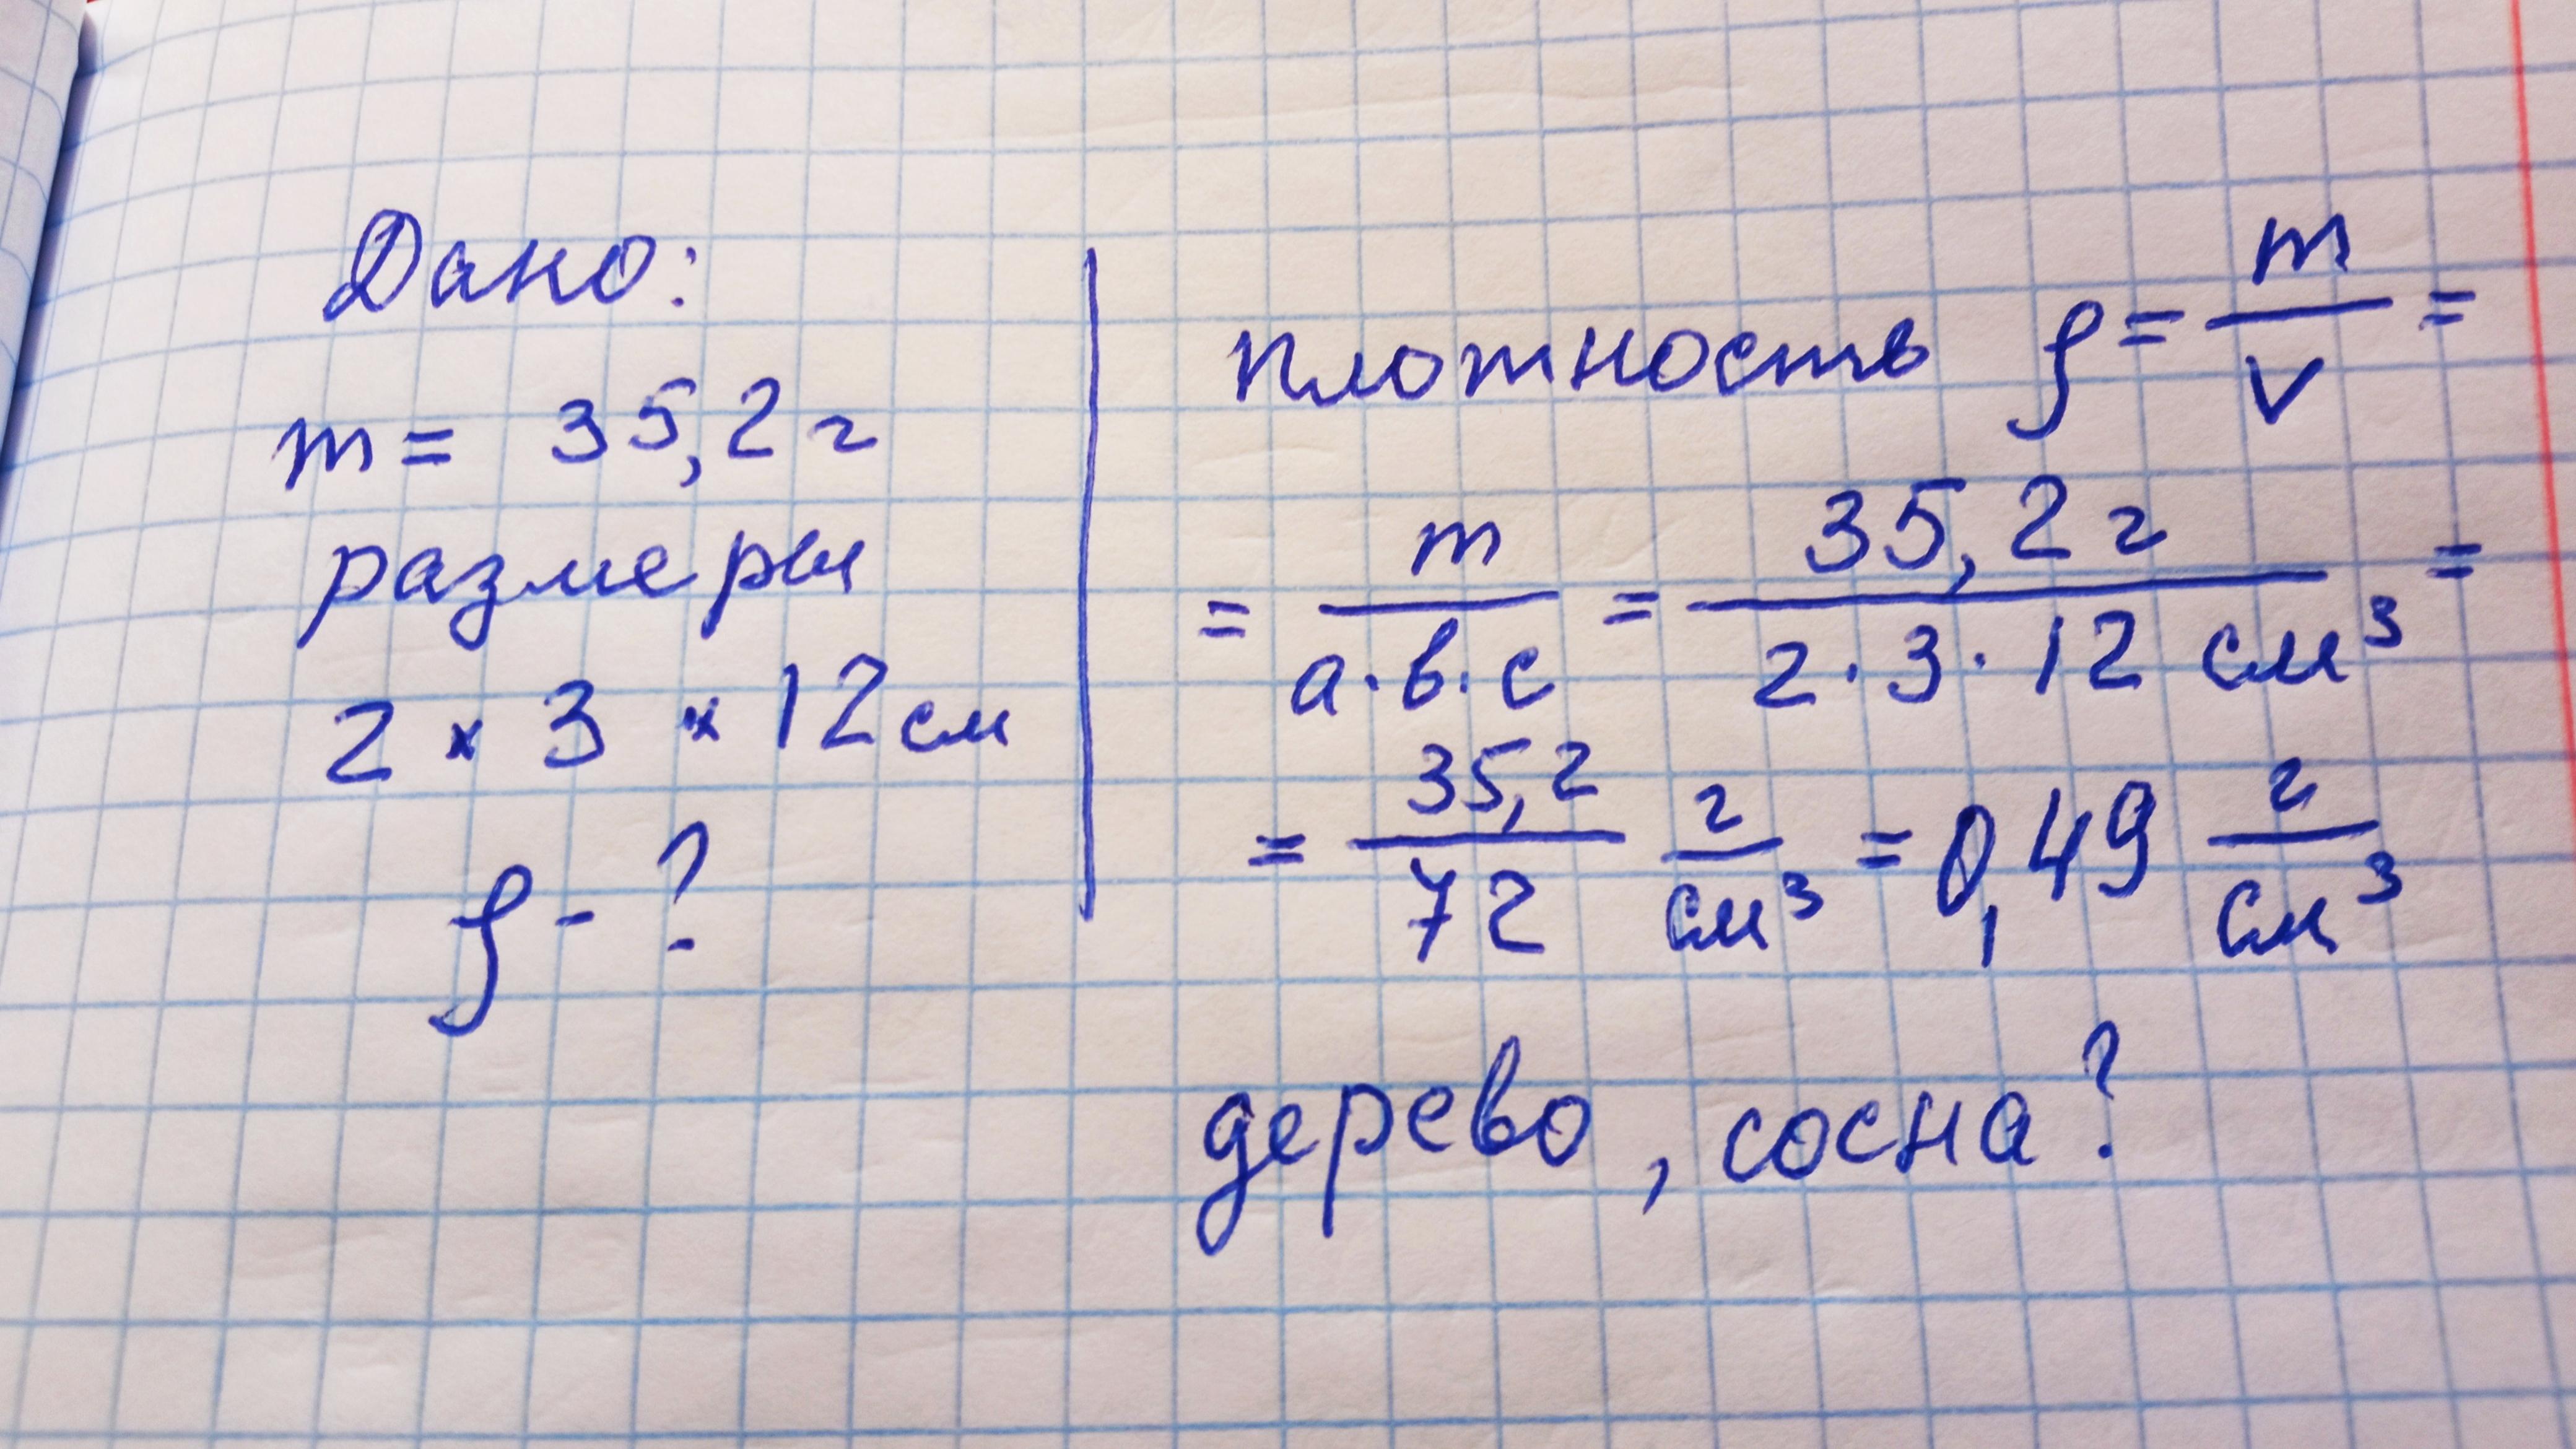 Дано:
m = 35,2 г
размеры
2 × 3 × 12 см
ρ - ?
плотность ρ = m/V =
= m/(а·в·с) = 35,2 г/(2·3·12 см³) =
= 35,2/72 г/см³ = 0,49 г/см³
дерево, сосна?